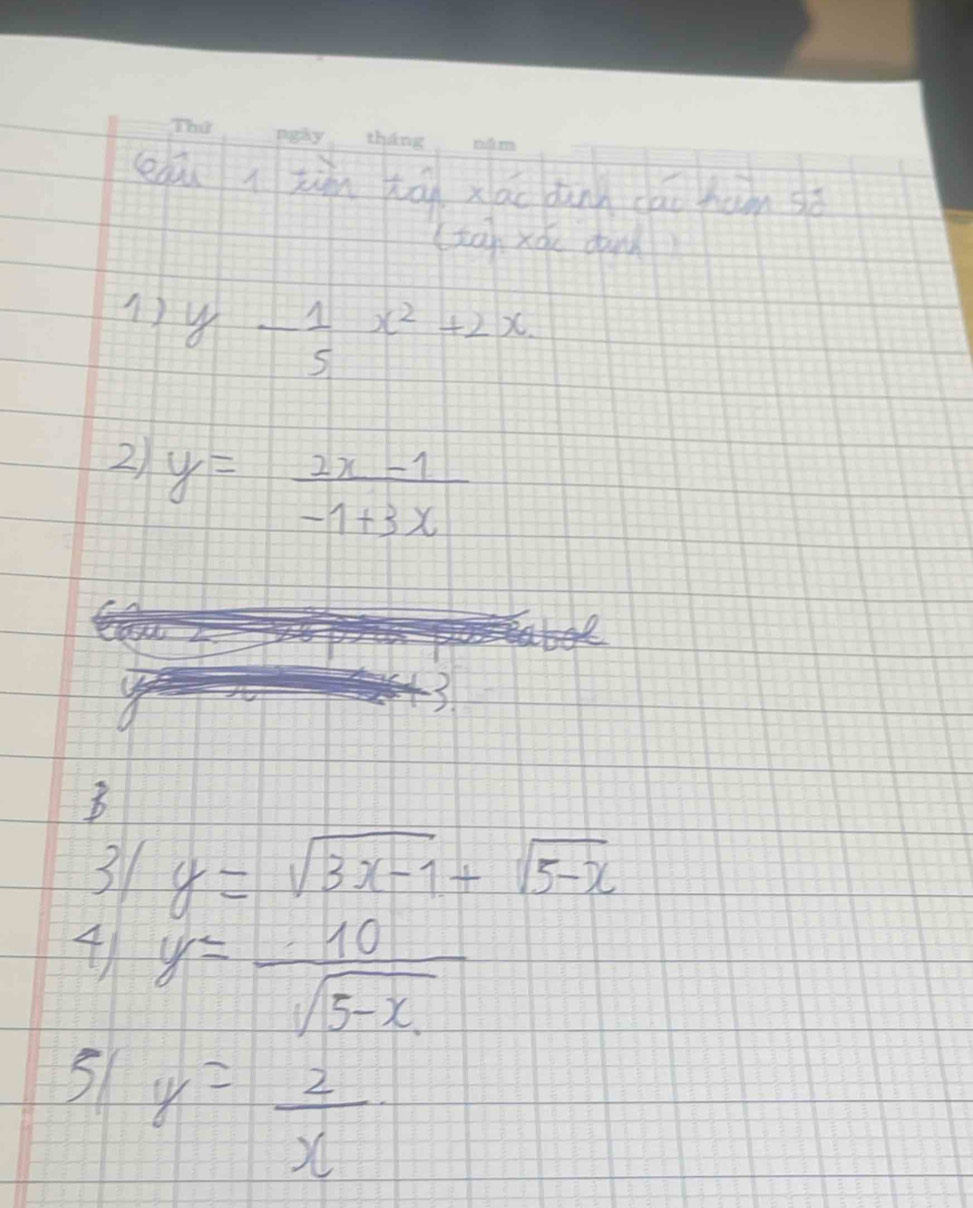 Thứ ngày tháng năm
Câu 1 tìm tập xác định các hàm số
(tập xác định)
1) y - 1/5 x² + 2x.
2) y = (2x - 1)/(-1 + 3x)
+3.
3/ y = √(3x-1) + √(5-x)
4) y = 10/√(5-x)
5/ y = 2/x